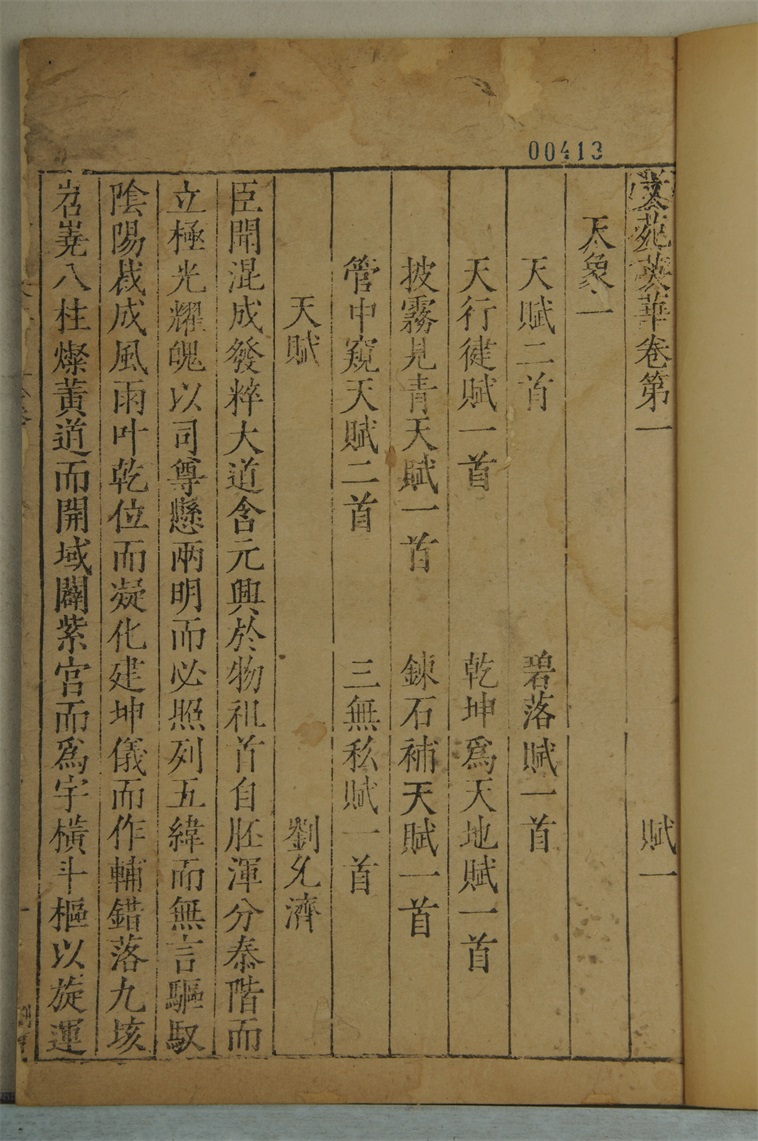 00413
文苑英華卷第一 賦一
天象一
天賦二首 碧落賦一首
天行健賦一首 乾坤爲天地賦一首
披霧見青天賦一首 鍊石補天賦一首
管中窺天賦二首 三無私賦一首
天賦 劉允濟
臣聞混成發粹大道含元興於物祖首自胚渾分泰階而
立極光耀魄以司尊懸兩明而必照列五緯而無言驅馭
陰陽裁成風雨叶乾位而凝化建坤儀而作輔錯落九垓
岧嶤八柱燦黃道而開域闢紫宮而爲宇橫斗樞以旋運